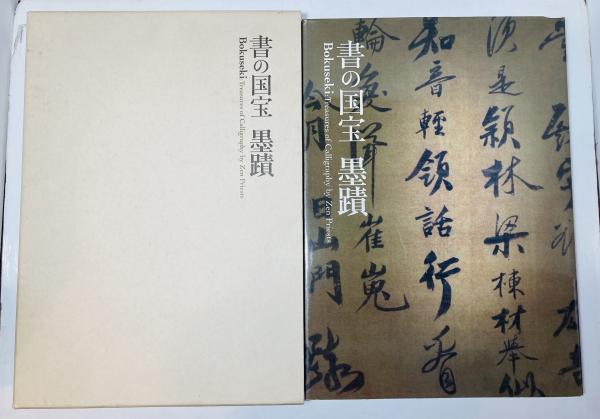 書の国宝 墨蹟
Bokuseki Treasures of Calligraphy by Zen Priests
書の国宝 墨蹟
Bokuseki Treasures of Calligraphy by Zen Priests
須是頴林梁棟材舉似
知音輕領話行看
輪奐聳崔嵬
山門